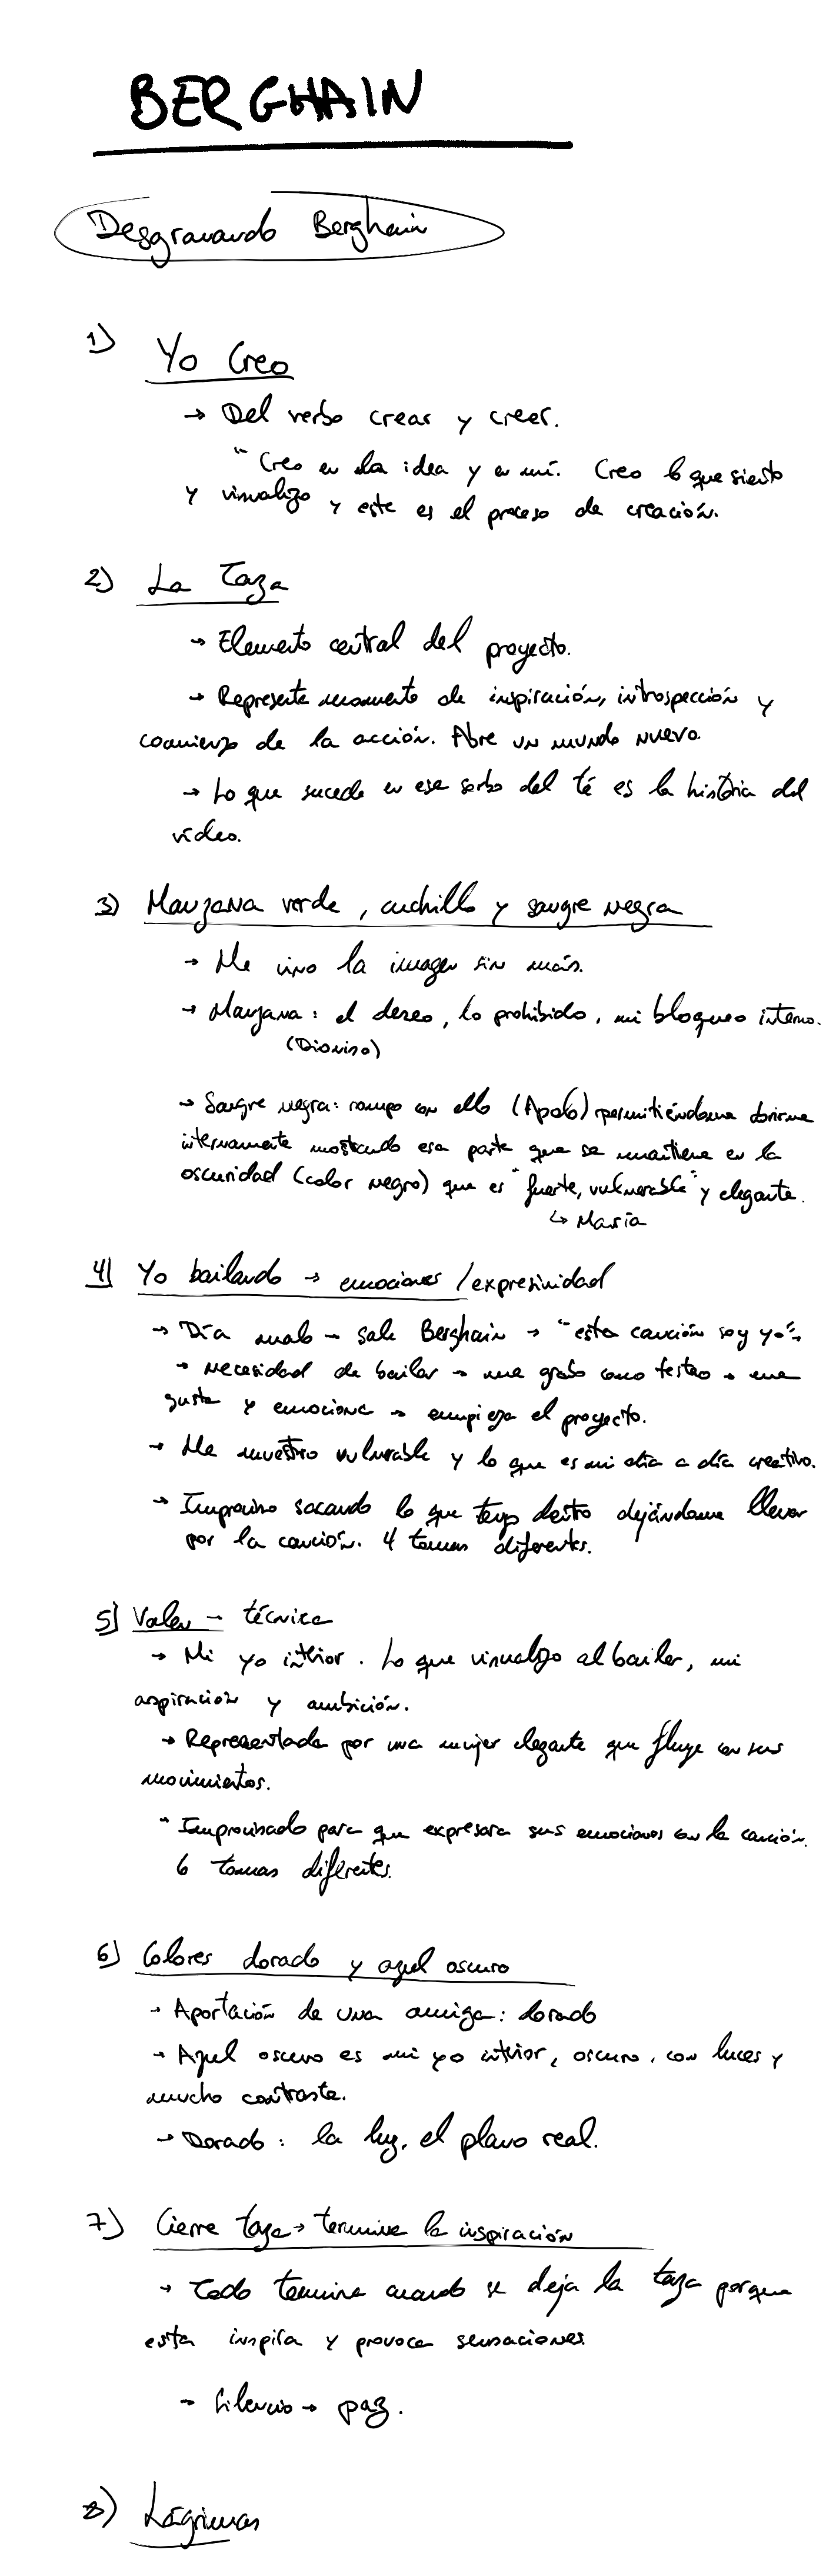 BERGHAIN
Desgranando Berghain
1) Yo Creo
→ Del verbo crear y creer.
" Creo en la idea y en mí. Creo lo que siento
y visualizo y este es el proceso de creación.
2) La Taza
→ Elemento central del proyecto.
→ Representa momento de inspiración, introspección y
comienzo de la acción. Abre un mundo nuevo.
→ Lo que sucede en ese sorbo del té es la história del
vídeo.
3) Manzana verde, cuchillo y sangre negra
→ Me vino la imagen sin más.
→ Manzana: el deseo, lo prohibido, mi bloqueo interno.
(Dioniso)
→ Sangre negra: rompo con ello (Apolo) permitiéndome abrirme
internamente mostrando esa parte que se mantiene en la
oscuridad (color negro) que es "fuerte, vulnerable" y elegante.
↳ María
4) Yo bailando → emociones / expresividad
→ Día malo – sale Berghain → "esta canción soy yo" →
→ necesidad de bailar → me grabo como testeo → me
gusta y emociona → empieza el proyecto.
→ Me muestro vulnerable y lo que es mi día a día creativo.
→ Improviso sacando lo que tengo dentro dejándome llevar
por la canción. 4 tomas diferentes.
5) Valen – técnica
→ Mi yo interior. Lo que visualizo al bailar, mi
aspiración y ambición.
→ Representada por una mujer elegante que fluye con sus
movimientos.
" Improvisado para que expresara sus emociones con la canción.
6 tomas diferentes.
6) Colores dorado y azul oscuro
→ Aportación de una amiga: dorado
→ Azul oscuro es mi yo interior, oscuro, con luces y
mucho contraste.
→ Dorado: la luz, el plano real.
7) Cierre taza → termina la inspiración
→ Todo termina cuando se deja la taza porque
esta inspira y provoca sensaciones.
→ Silencio → paz.
8) Lágrimas